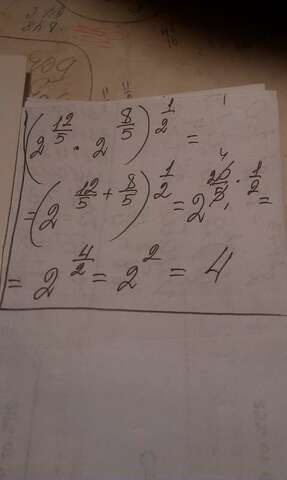 (2^{12/5} · 2^{8/5})^{1/2} =
= (2^{12/5 + 8/5})^{1/2} = 2^{20/5 · 1/2} =
= 2^{4/2} = 2^2 = 4